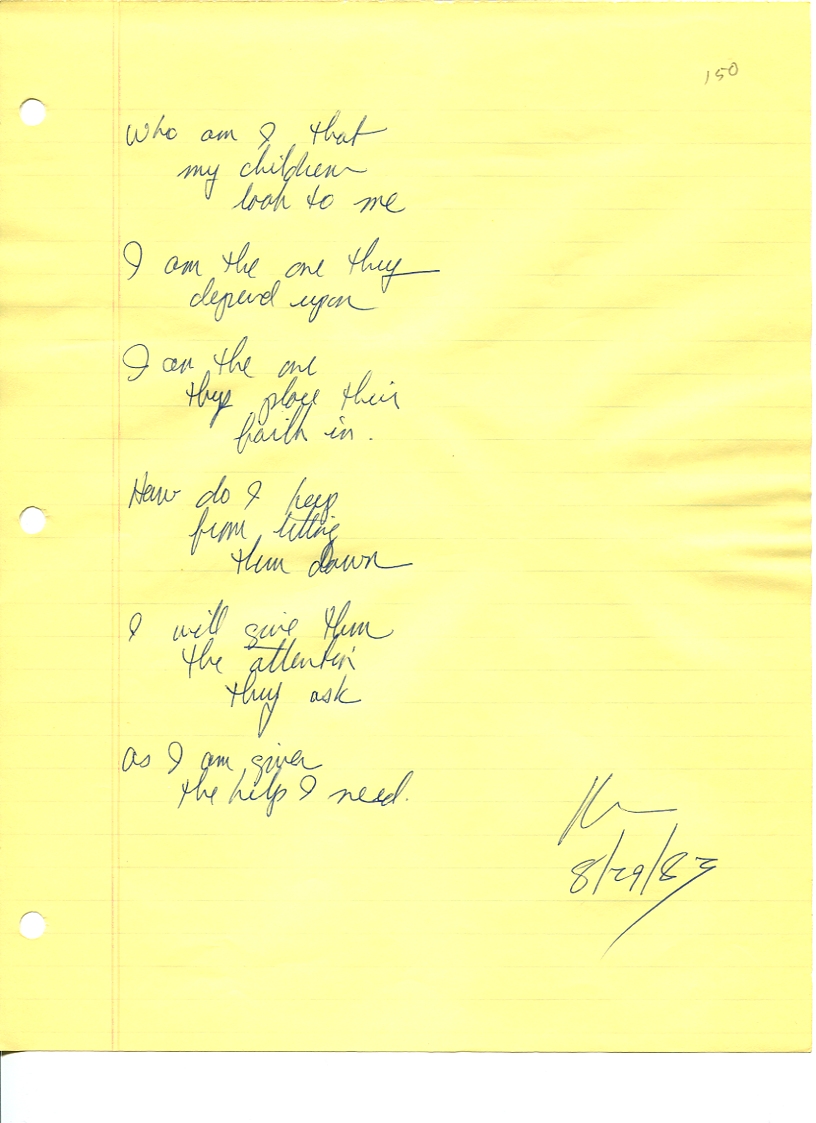 150
Who am I that
my children
look to me
I am the one they
depend upon
I am the one
they place their
faith in.
How do I keep
from letting
them down
I will give them
the attention
they ask
as I am given
the help I need.
8/29/83